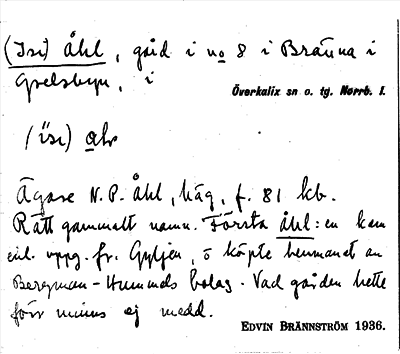 (Isi) Åhl, gård i no 8 i Bränna i
Grelsbyn, i
Överkalix sn o. tg. Norrb. l.
(ɩsɩ) ɑlv
Ägare N. P. Åhl, häg, f. 81 kb.
Rätt gammalt namn. Första åhl:en kom
enl. uppg. fr. Gyljen, o köpte hemmanet av
Bergman-Hummels bolag. Vad gården hette
förr minns ej medd.
EDVIN BRÄNNSTRÖM 1936.